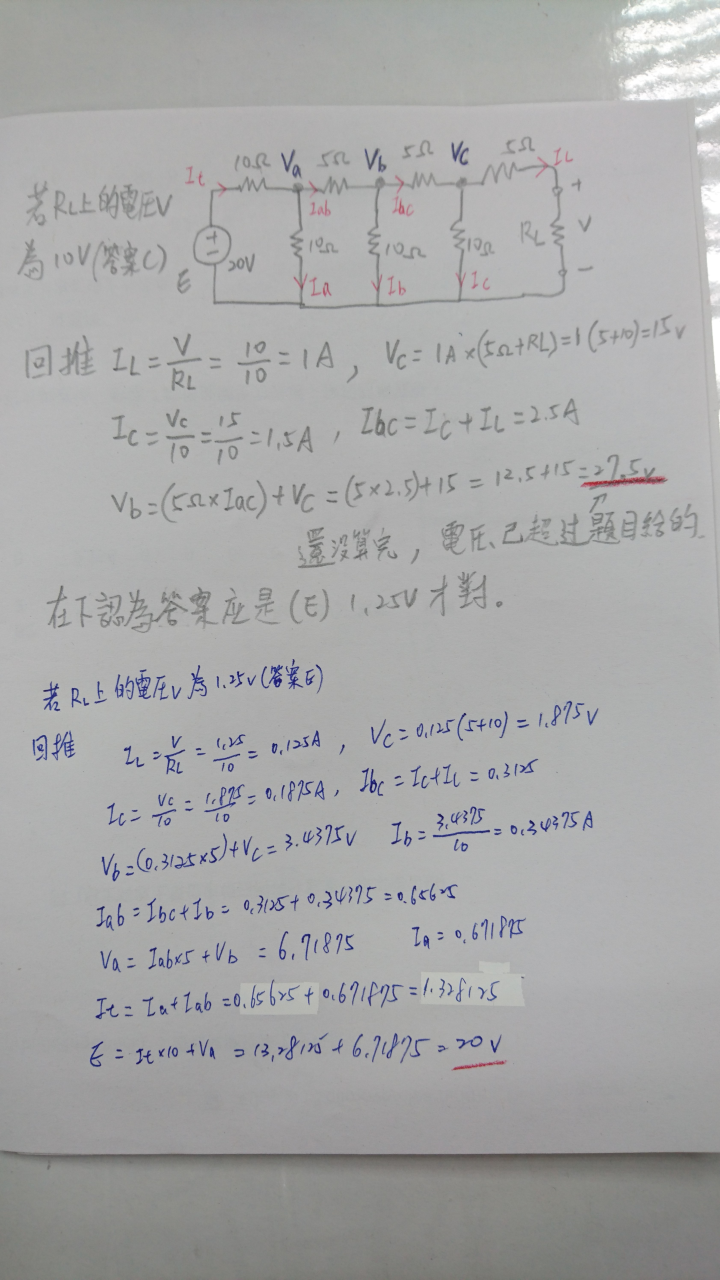 10Ω Va 5Ω Vb 5Ω Vc 5Ω IL
It
Iab Ibc
若RL上的電壓V
為10V(答案C)
E 20V 10Ω 10Ω 10Ω RL V
+
−
Ia Ib Ic
回推 IL=V/RL=10/10=1A, Vc=1A×(5Ω+RL)=1(5+10)=15V
Ic=Vc/10=15/10=1.5A, Ibc=Ic+IL=2.5A
Vb=(5Ω×Iac)+Vc=(5×2.5)+15=12.5+15=27.5V
還沒算完,電壓已超过題目給的
在下認為答案应是(E) 1.25V才對。
若RL上的電壓V為1.25V(答案E)
回推 IL=V/RL=1.25/10=0.125A, Vc=0.125(5+10)=1.875V
Ic=Vc/10=1.875/10=0.1875A, Ibc=Ic+IL=0.3125
Vb=(0.3125×5)+Vc=3.4375V Ib=3.4375/10=0.34375A
Iab=Ibc+Ib=0.3125+0.34375=0.65625
Va=Iab×5+Vb=6.71875 Ia=0.671875
It=Ia+Iab=0.65625+0.671875=1.328125
E=It×10+Va=13.28125+6.71875=20V